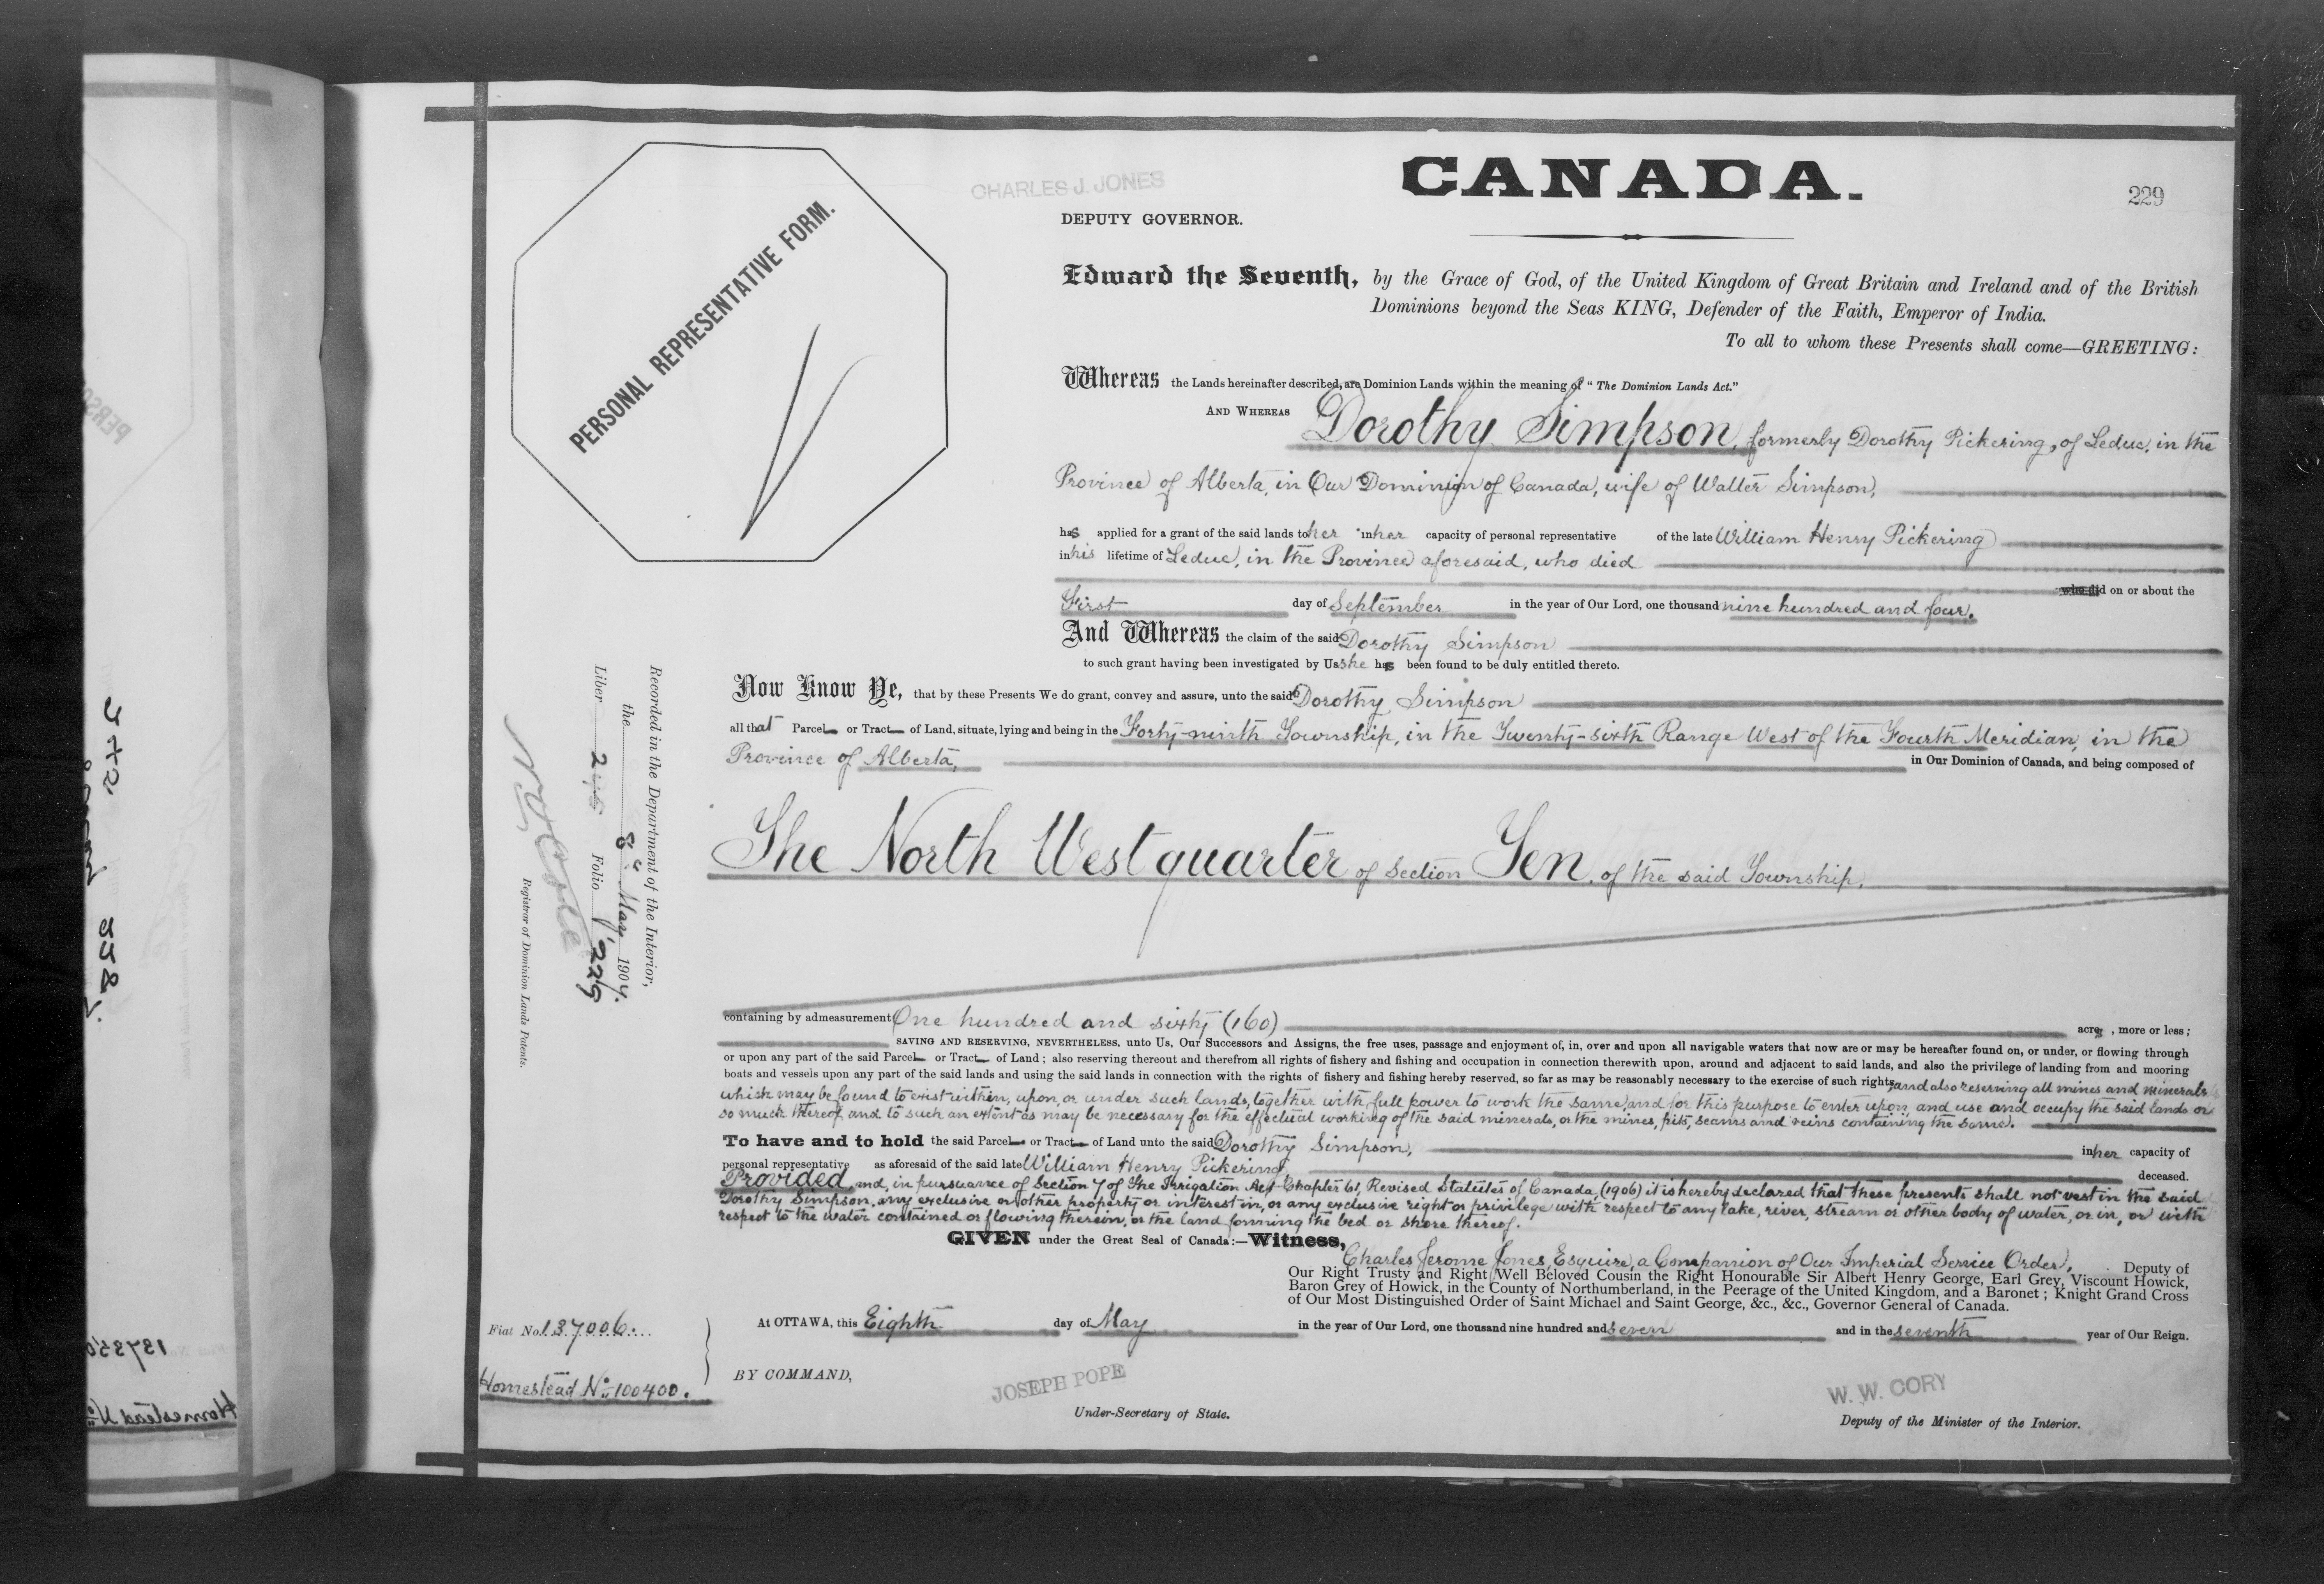 CHARLES J. JONES
CANADA.
229
DEPUTY GOVERNOR.
PERSONAL REPRESENTATIVE FORM.
Edward the Seventh, by the Grace of God, of the United Kingdom of Great Britain and Ireland and of the British
Dominions beyond the Seas KING, Defender of the Faith, Emperor of India.
To all to whom these Presents shall come—GREETING:
Whereas the Lands hereinafter described, are Dominion Lands within the meaning of "The Dominion Lands Act."
AND WHEREAS Dorothy Simpson, formerly Dorothy Pickering, of Leduc, in the
Province of Alberta, in Our Dominion of Canada, wife of Walter Simpson,
has applied for a grant of the said lands to her in her capacity of personal representative of the late William Henry Pickering
in his lifetime of Leduc, in the Province aforesaid, who died
on or about the
First day of September in the year of Our Lord, one thousand nine hundred and four.
And Whereas the claim of the said Dorothy Simpson
to such grant having been investigated by Us she has been found to be duly entitled thereto.
Now Know Ye, that by these Presents We do grant, convey and assure, unto the said Dorothy Simpson
all that Parcel or Tract of Land, situate, lying and being in the Forty-ninth Township, in the Twenty-sixth Range West of the Fourth Meridian, in the
Province of Alberta, in Our Dominion of Canada, and being composed of
The North West quarter of Section Ten, of the said Township.
containing by admeasurement One hundred and sixty (160) acres, more or less;
SAVING AND RESERVING, NEVERTHELESS, unto Us, Our Successors and Assigns, the free uses, passage and enjoyment of, in, over and upon all navigable waters that now are or may be hereafter found on, or under, or flowing through
or upon any part of the said Parcel or Tract of Land; also reserving thereout and therefrom all rights of fishery and fishing and occupation in connection therewith upon, around and adjacent to said lands, and also the privilege of landing from and mooring
boats and vessels upon any part of the said lands and using the said lands in connection with the rights of fishery and fishing hereby reserved, so far as may be reasonably necessary to the exercise of such rights, and also reserving all mines and minerals
which may be found to exist within, upon, or under such lands, together with full power to work the same, and for this purpose to enter upon, and use and occupy the said lands or
so much thereof and to such an extent as may be necessary for the effectual working of the said minerals, or the mines, pits, seams and veins containing the same.
To have and to hold the said Parcel or Tract of Land unto the said Dorothy Simpson, in her capacity of
personal representative as aforesaid of the said late William Henry Pickering, deceased.
Provided, and, in pursuance of Section 7 of the Irrigation Act Chapter 61, Revised Statutes of Canada, (1906) it is hereby declared that these presents shall not vest in the said
Dorothy Simpson, any exclusive or other property or interest in, or any exclusive right or privilege with respect to any lake, river, stream or other body of water, or in, or with
respect to the water contained or flowing therein, or the land forming the bed or shore thereof.
GIVEN under the Great Seal of Canada:—Witness,
Charles Jerome Jones, Esquire, a Companion of Our Imperial Service Order, Deputy of
Our Right Trusty and Right Well Beloved Cousin the Right Honourable Sir Albert Henry George, Earl Grey, Viscount Howick,
Baron Grey of Howick, in the County of Northumberland, in the Peerage of the United Kingdom, and a Baronet; Knight Grand Cross
of Our Most Distinguished Order of Saint Michael and Saint George, &c., &c., Governor General of Canada.
At OTTAWA, this Eighth day of May in the year of Our Lord, one thousand nine hundred and seven and in the seventh year of Our Reign.
BY COMMAND,
JOSEPH POPE
Under-Secretary of State.
W. W. CORY
Deputy of the Minister of the Interior.
Fiat No. 137006.
Homestead No. 100400.
Recorded in the Department of the Interior,
the 8th May 1907.
Liber Folio 229
Registrar of Dominion Lands Patents.
137350
Homestead No.